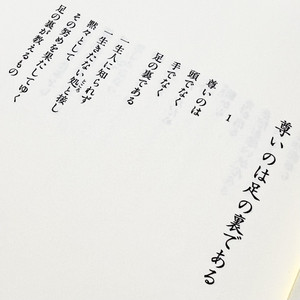 尊いのは足の裏である
1
尊いのは
頭でなく
手でなく
足の裏である
一生人に知られず
一生きたない処と接し
黙々として
その努めを果たしてゆく
足の裏が教えるもの